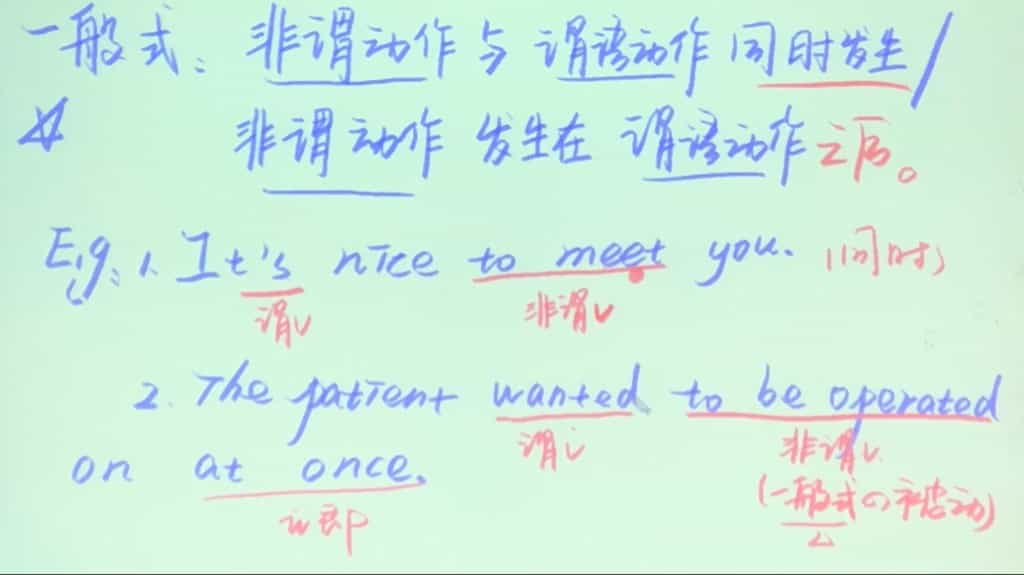 一般式: 非谓动作与谓语动作同时发生/
☆ 非谓动作发生在谓语动作之后。
E.g: 1. It's nice to meet you. (同时)
谓v 非谓v
2. The patient wanted to be operated
谓v 非谓v.
on at once. (一般式の被动)
立即